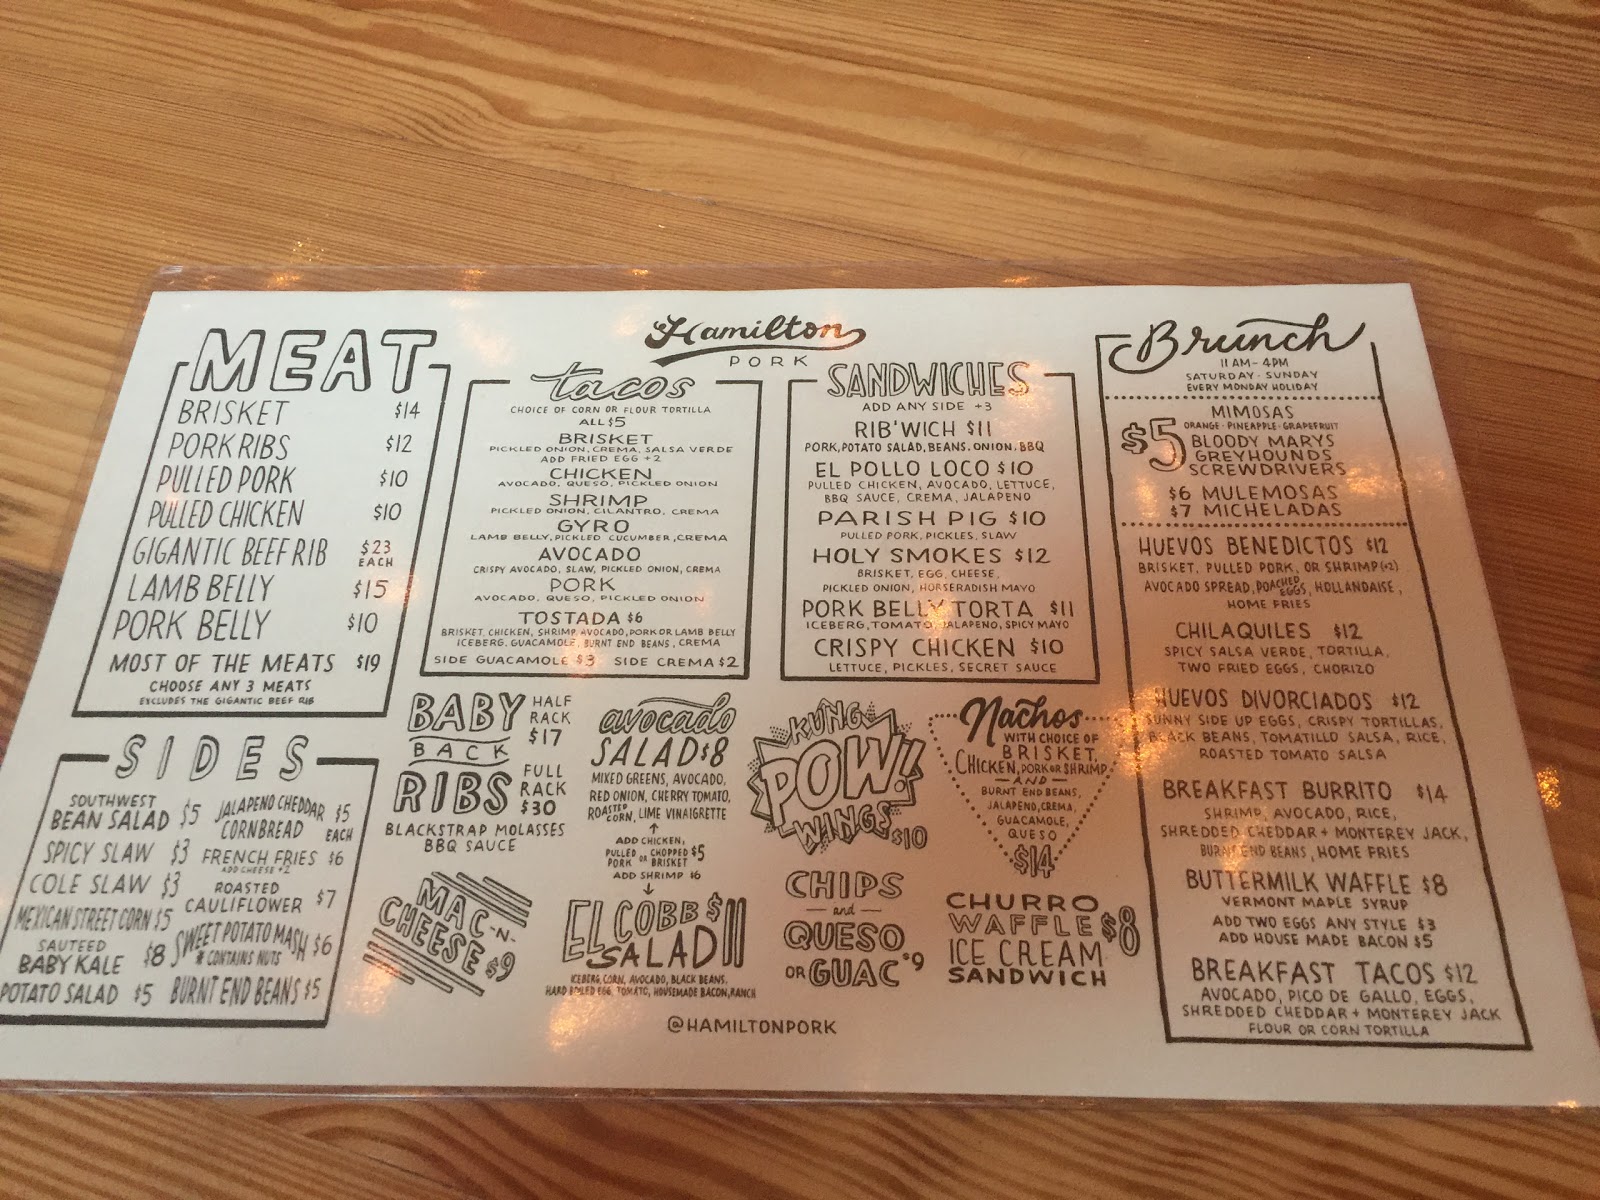 Hamilton
PORK
MEAT
BRISKET $14
PORK RIBS $12
PULLED PORK $10
PULLED CHICKEN $10
GIGANTIC BEEF RIB $23
EACH
LAMB BELLY $15
PORK BELLY $10
MOST OF THE MEATS $19
CHOOSE ANY 3 MEATS
EXCLUDES THE GIGANTIC BEEF RIB
SIDES
SOUTHWEST
BEAN SALAD $5
SPICY SLAW $3
COLE SLAW $3
MEXICAN STREET CORN $5
SAUTEED
BABY KALE $8
POTATO SALAD $5
JALAPENO CHEDDAR $5
CORNBREAD EACH
FRENCH FRIES $6
ADD CHEESE +2
ROASTED
CAULIFLOWER $7
SWEET POTATO MASH $6
* CONTAINS NUTS
BURNT END BEANS $5
tacos
CHOICE OF CORN OR FLOUR TORTILLA
ALL $5
BRISKET
PICKLED ONION, CREMA, SALSA VERDE
ADD FRIED EGG +2
CHICKEN
AVOCADO, QUESO, PICKLED ONION
SHRIMP
PICKLED ONION, CILANTRO, CREMA
GYRO
LAMB BELLY, PICKLED CUCUMBER, CREMA
AVOCADO
CRISPY AVOCADO, SLAW, PICKLED ONION, CREMA
PORK
AVOCADO, QUESO, PICKLED ONION
TOSTADA $6
BRISKET, CHICKEN, SHRIMP, AVOCADO, PORK OR LAMB BELLY
ICEBERG, GUACAMOLE, BURNT END BEANS, CREMA
SIDE GUACAMOLE $3 SIDE CREMA $2
SANDWICHES
ADD ANY SIDE +3
RIB'WICH $11
PORK, POTATO SALAD, BEANS, ONION, BBQ
EL POLLO LOCO $10
PULLED CHICKEN, AVOCADO, LETTUCE,
BBQ SAUCE, CREMA, JALAPENO
PARISH PIG $10
PULLED PORK, PICKLES, SLAW
HOLY SMOKES $12
BRISKET, EGG, CHEESE,
PICKLED ONION, HORSERADISH MAYO
PORK BELLY TORTA $11
ICEBERG, TOMATO, JALAPENO, SPICY MAYO
CRISPY CHICKEN $10
LETTUCE, PICKLES, SECRET SAUCE
BABY
BACK
RIBS
HALF
RACK
$17
FULL
RACK
$30
BLACKSTRAP MOLASSES
BBQ SAUCE
MAC -N-
CHEESE $9
avocado
SALAD $8
MIXED GREENS, AVOCADO,
RED ONION, CHERRY TOMATO,
ROASTED CORN, LIME VINAIGRETTE
ADD CHICKEN,
PULLED PORK OR CHOPPED BRISKET $5
ADD SHRIMP $6
EL COBB $11
SALAD
ICEBERG, CORN, AVOCADO, BLACK BEANS,
HARD BOILED EGG, TOMATO, HOUSEMADE BACON, RANCH
KUNG
POW!
WINGS $10
CHIPS
and
QUESO
OR GUAC $9
Nachos
WITH CHOICE OF
BRISKET,
CHICKEN, PORK OR SHRIMP
AND
BURNT END BEANS,
JALAPENO, CREMA,
GUACAMOLE,
QUESO
$14
CHURRO
WAFFLE $8
ICE CREAM
SANDWICH
@HAMILTONPORK
Brunch
11 AM - 4PM
SATURDAY - SUNDAY
EVERY MONDAY HOLIDAY
$5
MIMOSAS
ORANGE - PINEAPPLE - GRAPEFRUIT
BLOODY MARYS
GREYHOUNDS
SCREWDRIVERS
$6 MULEMOSAS
$7 MICHELADAS
HUEVOS BENEDICTOS $12
BRISKET, PULLED PORK, OR SHRIMP (+2)
AVOCADO SPREAD, POACHED EGGS, HOLLANDAISE,
HOME FRIES
CHILAQUILES $12
SPICY SALSA VERDE, TORTILLA,
TWO FRIED EGGS, CHORIZO
HUEVOS DIVORCIADOS $12
SUNNY SIDE UP EGGS, CRISPY TORTILLAS,
BLACK BEANS, TOMATILLO SALSA, RICE,
ROASTED TOMATO SALSA
BREAKFAST BURRITO $14
SHRIMP, AVOCADO, RICE,
SHREDDED CHEDDAR + MONTEREY JACK,
BURNT END BEANS, HOME FRIES
BUTTERMILK WAFFLE $8
VERMONT MAPLE SYRUP
ADD TWO EGGS ANY STYLE $3
ADD HOUSE MADE BACON $5
BREAKFAST TACOS $12
AVOCADO, PICO DE GALLO, EGGS,
SHREDDED CHEDDAR + MONTEREY JACK
FLOUR OR CORN TORTILLA